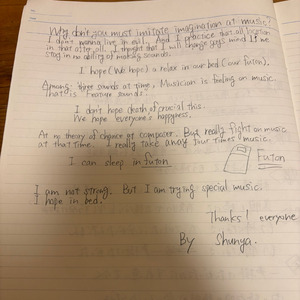 Why don't you must imitate imagination at music?
I don't wanna live in evil. And I practice that all location
in that after all. I thought that I will change guys mind if me
stay in me ability of making sounds.
I hope (We hope) a relax in our bed (our futon).
Among tiger sounds at time, Musician is feeling on music
That is feature sounds.
I don't hope death of crucial this.
We hope everyone's happyness.
At my theory of choice at computer. But really fight on music
at that time. I really take away four times music.
I can sleep in futon
Futon
I am not strong. But I am trying special music.
I hope in bed.
Thanks! everyone
By Shunya.